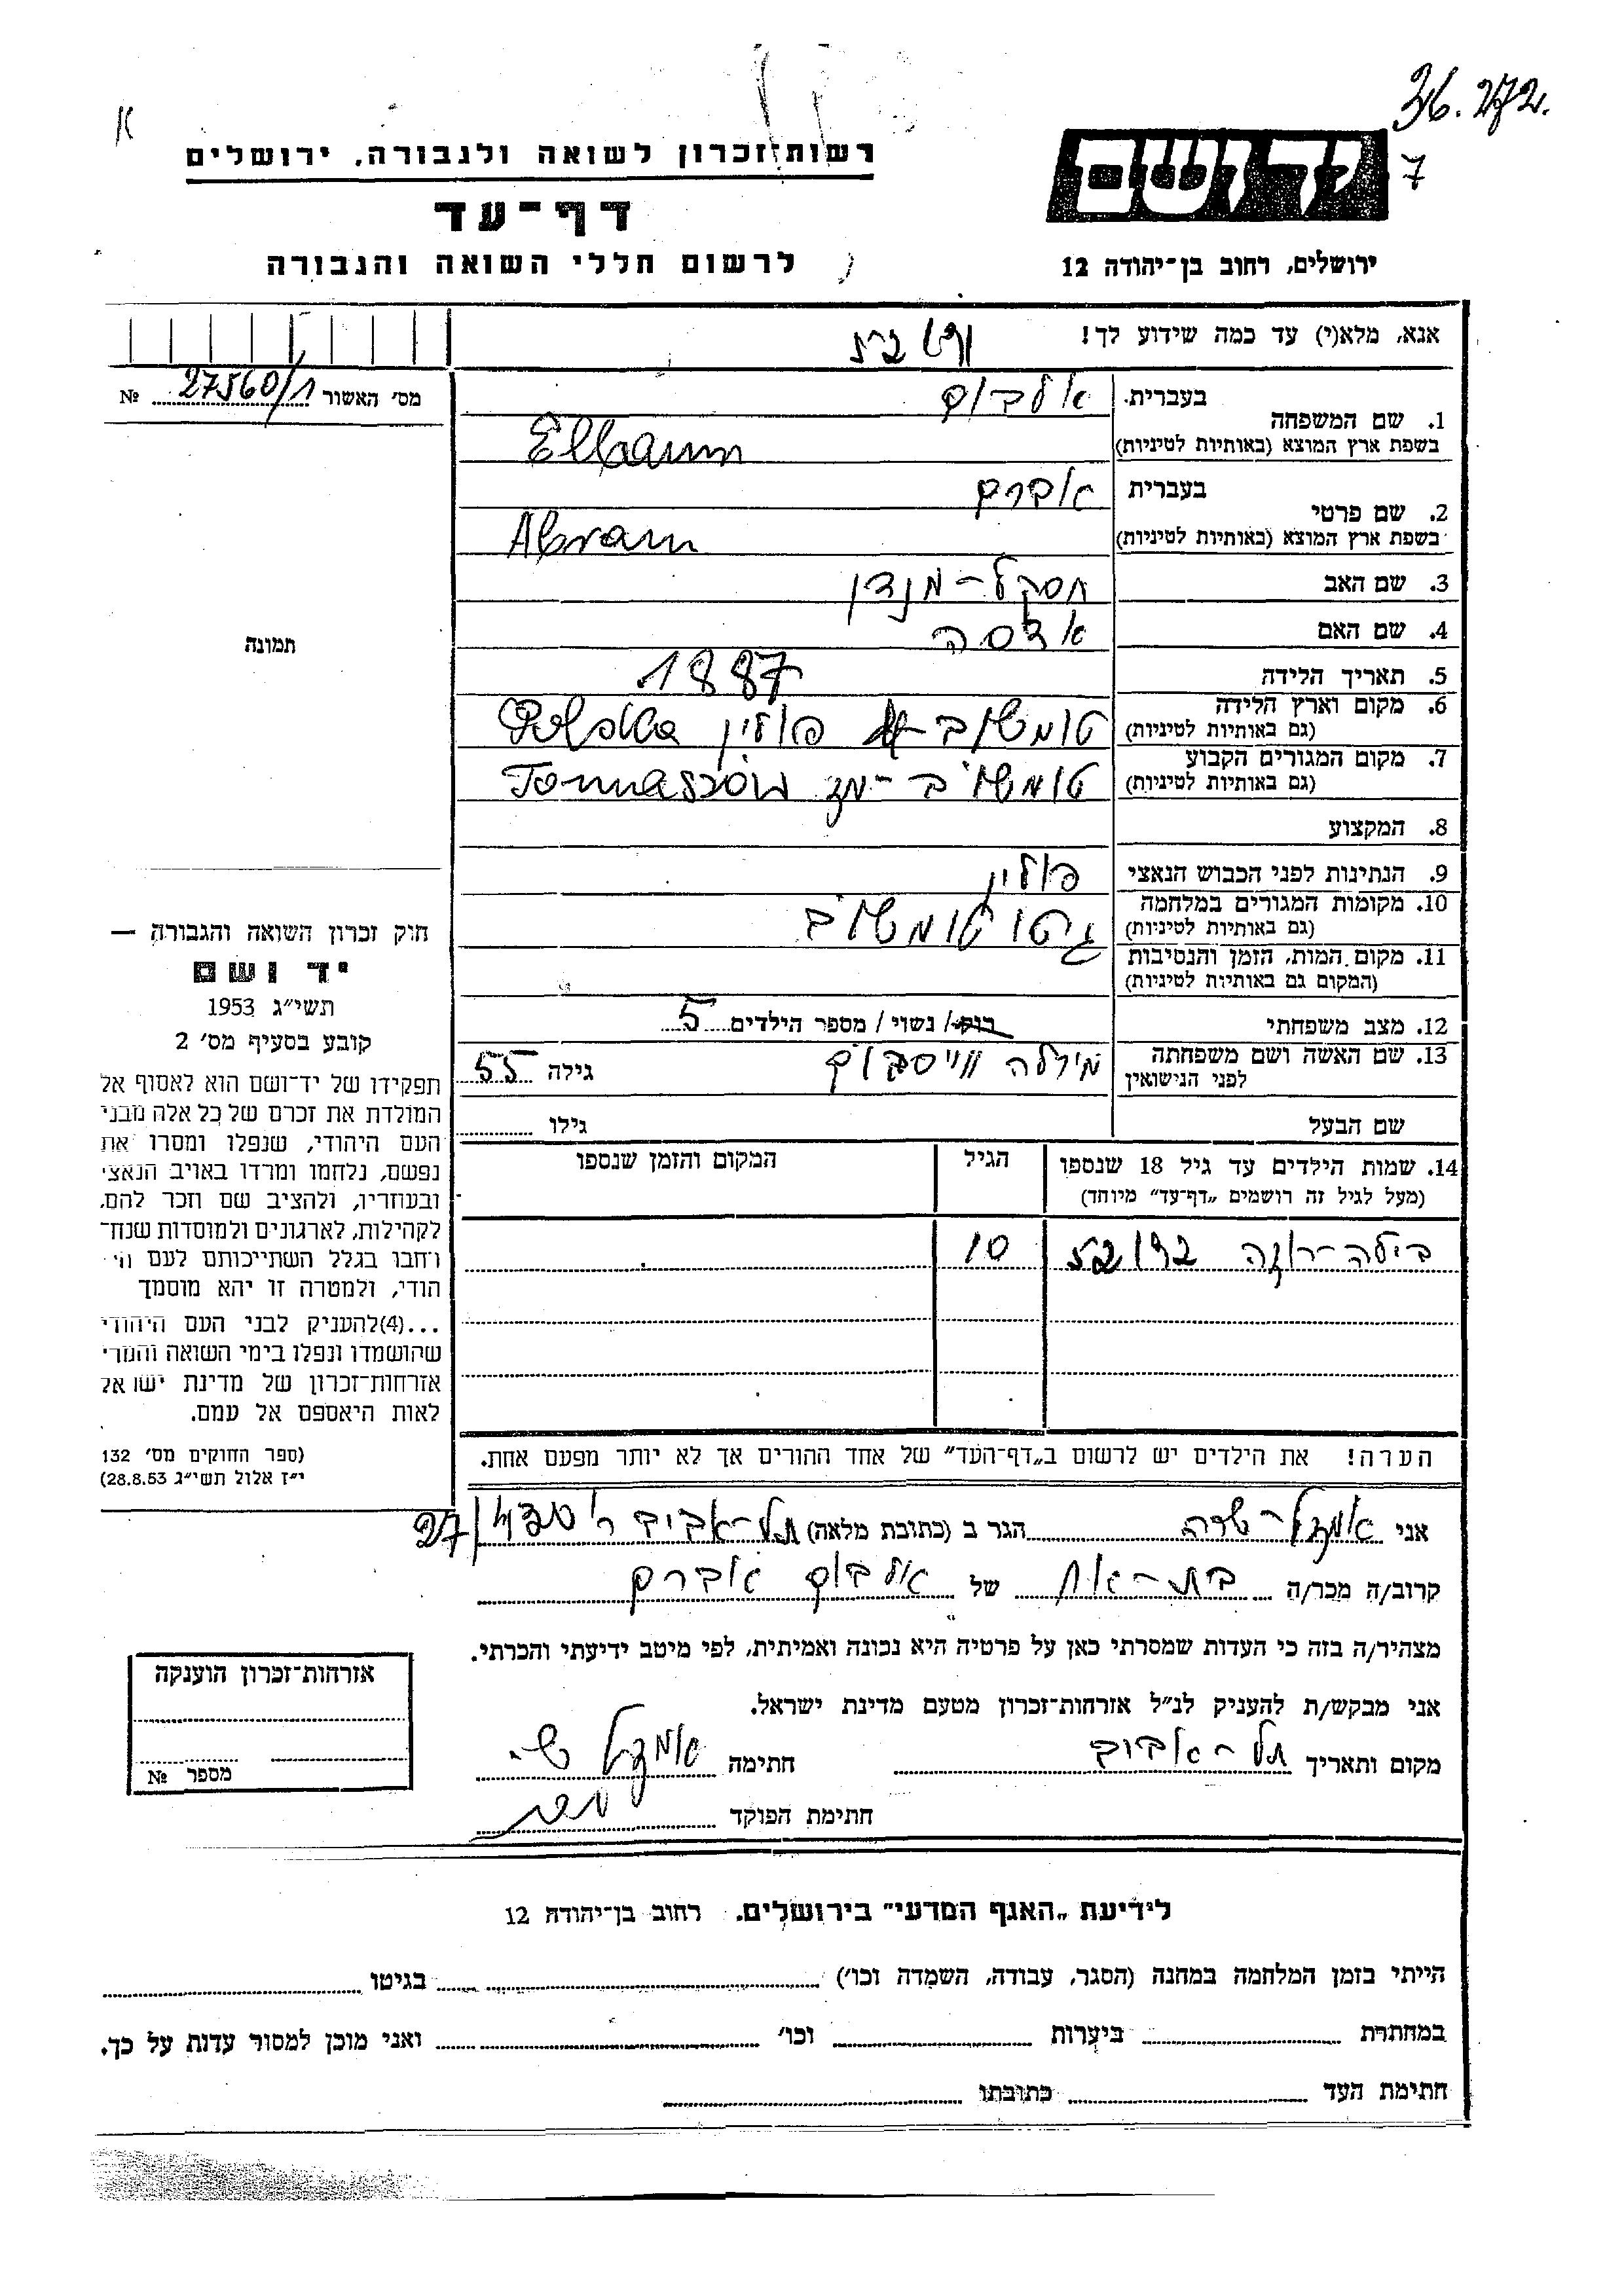 36.272.
7
רשות־זכרון לשואה ולגבורה, ירושלים
יד ושם
דף־עד
לרשום חללי השואה והגבורה
ירושלים, רחוב בן־יהודה 12
אנא, מלא(י) עד כמה שידוע לך!
מס׳ האשור 27560/1 №
1. שם המשפחה
בעברית אלבוים
בשפת ארץ המוצא (באותיות לטיניות) Elbaum
2. שם פרטי
בעברית אברם
בשפת ארץ המוצא (באותיות לטיניות) Abram
3. שם האב
4. שם האם
5. תאריך הלידה 1887
6. מקום וארץ הלידה
(גם באותיות לטיניות) טומשוב פולין Polska
7. מקום המגורים הקבוע
(גם באותיות לטיניות) טומשוב־מז Tomaszów
8. המקצוע
9. הנתינות לפני הכבוש הנאצי פולין
10. מקומות המגורים במלחמה
(גם באותיות לטיניות) גיטו טומשוב
11. מקום המות, הזמן והנסיבות
(המקום גם באותיות לטיניות)
12. מצב משפחתי רוק/ נשוי/ מספר הילדים 5
13. שם האשה ושם משפחתה
לפני הנישואין מירלה ווייסבוים גילה 55
שם הבעל גילו
14. שמות הילדים עד גיל 18 שנספו
(מעל לגיל זה רושמים „דף־עד” מיוחד)
הגיל
המקום והזמן שנספו
בילה־רוזה 10
הערה! את הילדים יש לרשום ב„דף־העד” של אחד ההורים אך לא יותר מפעם אחת.
תמונה
חוק זכרון השואה והגבורה —
יד ושם
תשי״ג 1953
קובע בסעיף מס׳ 2
תפקידו של יד־ושם הוא לאסוף אל
המולדת את זכרם של כל אלה מבני
העם היהודי, שנפלו ומסרו את
נפשם, נלחמו ומרדו באויב הנאצי
ובעוזריו, ולהציב שם וזכר להם,
לקהילות, לארגונים ולמוסדות שנח־
רחבו בגלל השתייכותם לעם הי־
הודי, ולמטרה זו יהא מוסמך
...(4)להעניק לבני העם היהודי
שהושמדו ונפלו בימי השואה והמרי
אזרחות־זכרון של מדינת ישראל
לאות היאספם אל עמם.
(ספר החוקים מס׳ 132
י״ז אלול תשי״ג 28.8.53)
אני הגר ב (כתובת מלאה) תל־אביב 27
קרוב/ה מכר/ה בת־אח של אלבוים אברם
מצהיר/ה בזה כי העדות שמסרתי כאן על פרטיה היא נכונה ואמיתית, לפי מיטב ידיעתי והכרתי.
אני מבקש/ת להעניק לנ״ל אזרחות־זכרון מטעם מדינת ישראל.
מקום ותאריך תל־אביב חתימה
חתימת הפוקד
אזרחות־זכרון הוענקה
מספר №
לידיעת „האגף המדעי” בירושלים. רחוב בן־יהודה 12
הייתי בזמן המלחמה במחנה (הסגר, עבודה, השמדה וכו׳) בגיטו
במחתרת ביערות וכו׳ ואני מוכן למסור עדות על כך.
חתימת העד כתובתו